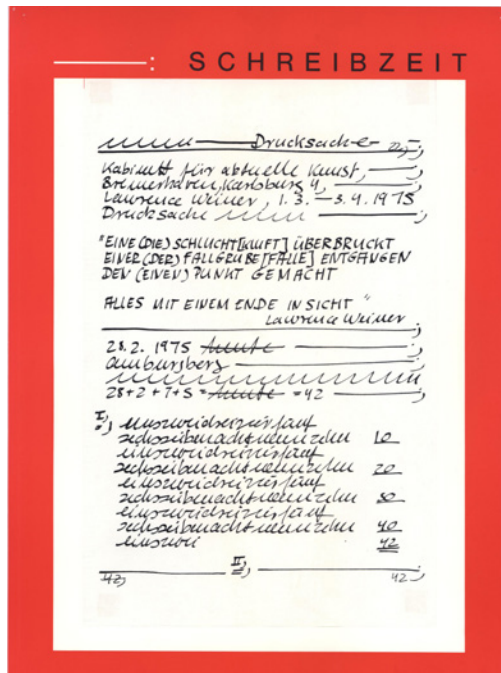 SCHREIBZEIT
Drucksache
Kabinett für aktuelle Kunst,
Bremerhaven, Karlsburg 4,
Lawrence Weiner, 1.3. – 3.4.1975
Drucksache
"EINE (DIE) SCHLUCHT [KLUFT] ÜBERBRÜCKT
EINER (DER) FALLGRUBE [FALLE] ENTGANGEN
DEN (EINEN) PUNKT GEMACHT
ALLES MIT EINEM ENDE IN SICHT"
Lawrence Weiner
28.2. 1975 heute
am burgberg
28+2+7+5 = heute = 42
I,
einszweidreivierfünf
sechssiebenachtneunzehn 10
einszweidreivierfünf
sechssiebenachtneunzehn 20
einszweidreivierfünf
sechssiebenachtneunzehn 30
einszweidreivierfünf
sechssiebenachtneunzehn 40
einszwei 42
II,
42, 42